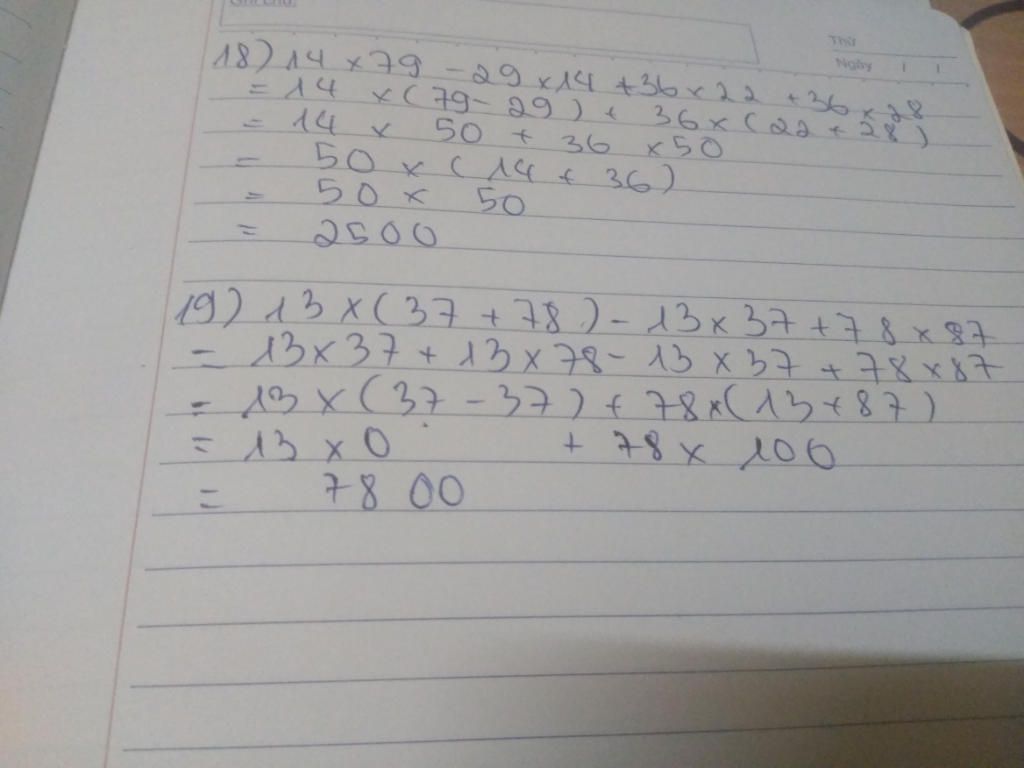 Ghi chú:
Thứ
Ngày / /
18) 14 × 79 - 29 × 14 + 36 × 22 + 36 × 28
= 14 × (79 - 29) + 36 × (22 + 28)
= 14 × 50 + 36 × 50
= 50 × (14 + 36)
= 50 × 50
= 2500
19) 13 × (37 + 78) - 13 × 37 + 78 × 87
= 13 × 37 + 13 × 78 - 13 × 37 + 78 × 87
= 13 × (37 - 37) + 78 × (13 + 87)
= 13 × 0 + 78 × 100
= 7800